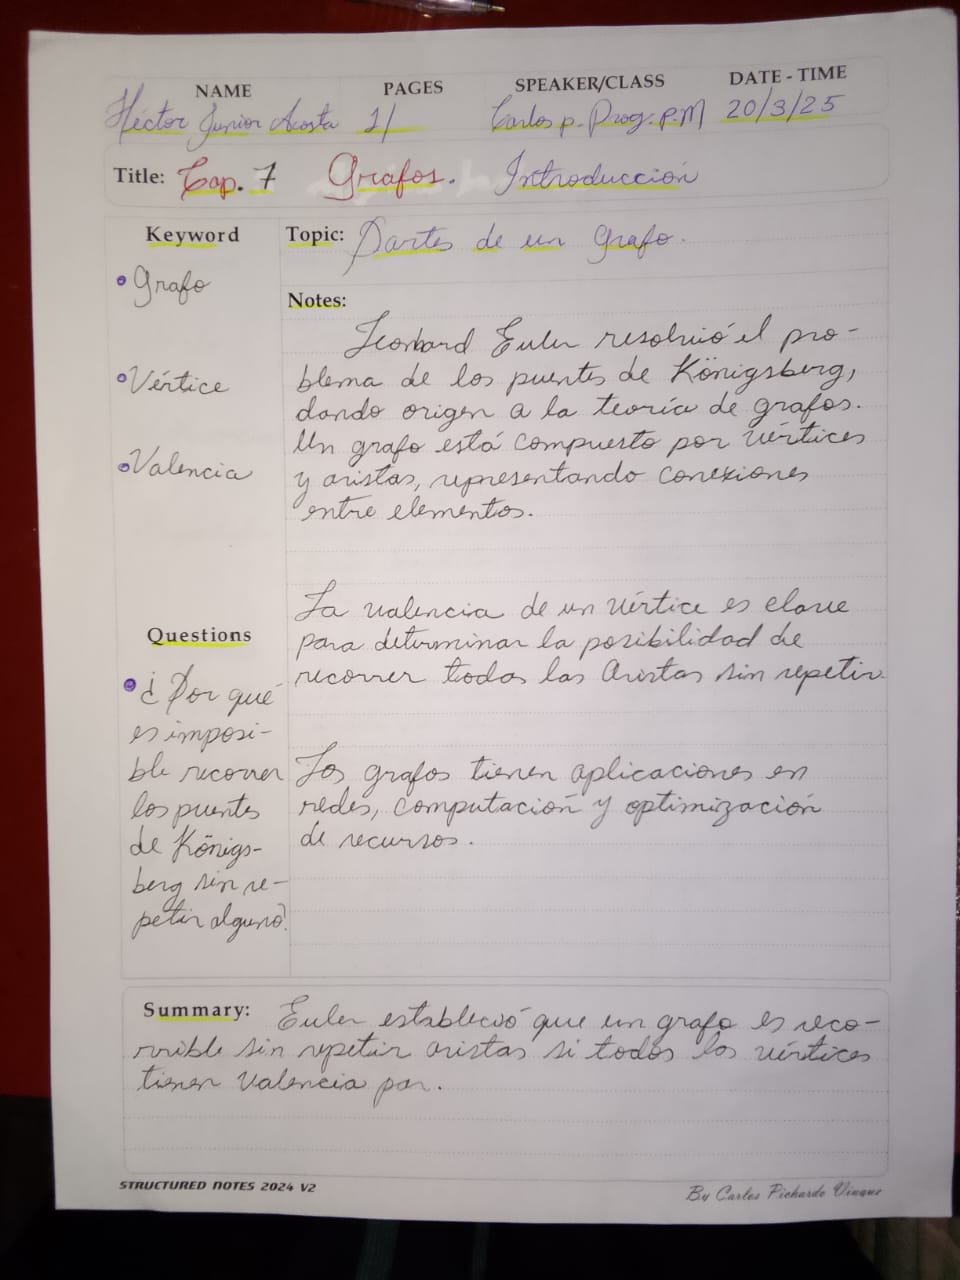 NAME PAGES SPEAKER/CLASS DATE - TIME
Héctor Junior Acosta 1/ Carlos p. Prog. P.M 20/3/25
Title: Cap. 7 Grafos. Introducción
Keyword
• Grafo
• Vértice
• Valencia
Questions
• ¿Por qué
es imposi-
ble recorrer
los puentes
de Königs-
berg sin re-
petir alguno?
Topic: Partes de un grafo.
Notes:
Leonhard Euler resolvió el pro-
blema de los puentes de Königsberg,
dando origen a la teoría de grafos.
Un grafo está compuesto por vértices
y aristas, representando conexiones
entre elementos.
La valencia de un vértice es clave
para determinar la posibilidad de
recorrer todas las aristas sin repetir.
Los grafos tienen aplicaciones en
redes, computación y optimización
de recursos.
Summary: Euler estableció que un grafo es reco-
rrible sin repetir aristas si todos los vértices
tienen valencia par.
STRUCTURED NOTES 2024 V2
By Carlos Pichardo Viuque